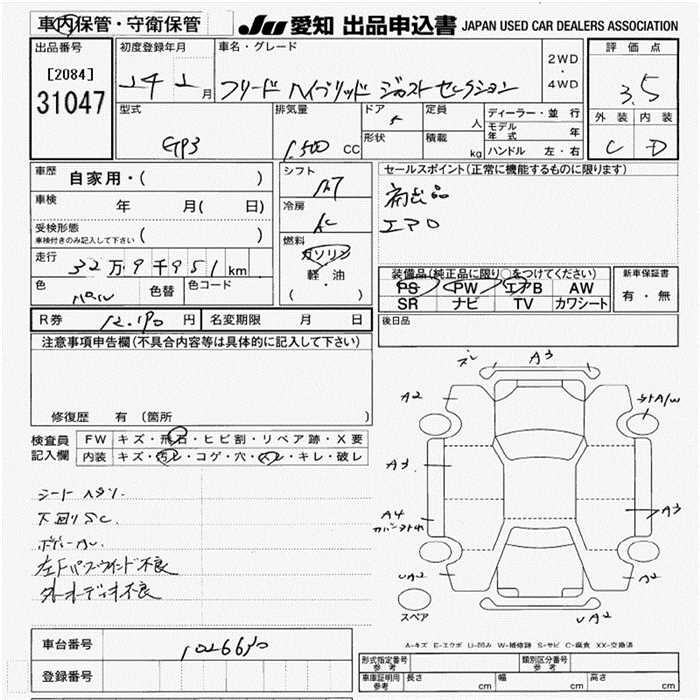 車内保管・守衛保管
JU 愛知 出品申込書 JAPAN USED CAR DEALERS ASSOCIATION
出品番号 初度登録年月 車名・グレード 評価点
[2084] 2WD・4WD
31047 24 年 2 月 フリード ハイブリッド ジャストセレクション 3.5
型式 排気量 ドア 5 定員 人 ディーラー・並行 外装 内装
モデル年式 年
GP3 1.500 CC 形状 積載 kg ハンドル 左・右 C D
車歴 自家用・( ) シフト AT セールスポイント(正常に機能するものに限ります)
車検 年 月( 日) 冷房 AC 補出品
受検形態 車検付きのみ記入して下さい ( ) エアロ
燃料 ガソリン
走行 32万9千951km 軽・油 装備品(純正品に限り○をつけてください) 新車保証書
色 パール 色替 色コード ( ) PS PW エアB AW 有・無
SR ナビ TV カワシート
R券 12.190 円 名変期限 月 日 後日品
注意事項申告欄(不具合内容等は具体的に記入して下さい)
ズレ A3
A2 A/W
修復歴 有 〔箇所
検査員記入欄 FW キズ・飛石・ヒビ割・リペア跡・X要
内装 キズ・汚レ・コゲ・穴・スレ・キレ・破レ
A3
シート ヘタリ.
A3
下回りSC. A4
ボディーカレ.
左Fパワーウインド不良 UA2 A2
外オーディオ不良
スペア UA2
A-キズ E-エクボ U-凹み W-補修跡 S-サビ C-腐食 XX-交換済
車台番号 1026640
型式指定番号 参考 類別区分番号 参考
登録番号 車庫証明用 参考 長さ cm 幅 cm 高さ cm